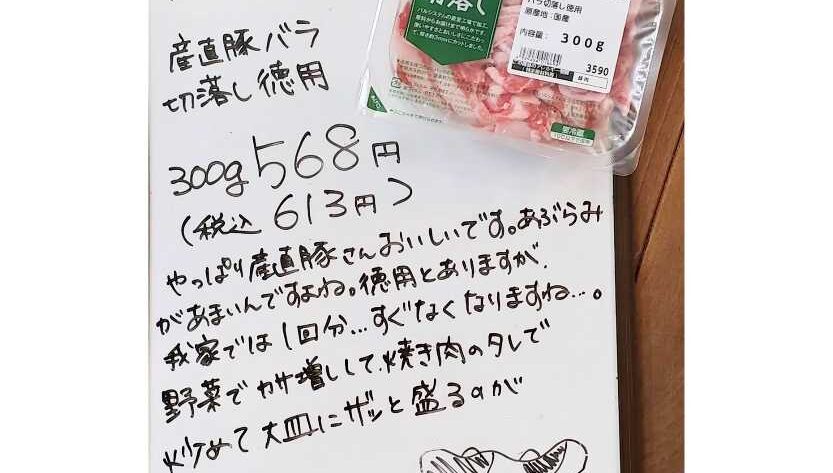 産直豚バラ
切落し徳用
300g 568円
(税込 613円)
やっぱり産直豚さんおいしいです。あぶらみ
があまいんですよね。徳用とありますが、
我家では1回分…すぐなくなりますね…。
野菜でカサ増しして、焼き肉のタレで
炒めて大皿にザッと盛るのが
切落し
バラ切落し徳用
原産地:国産
内容量: 300g
3590
要冷蔵